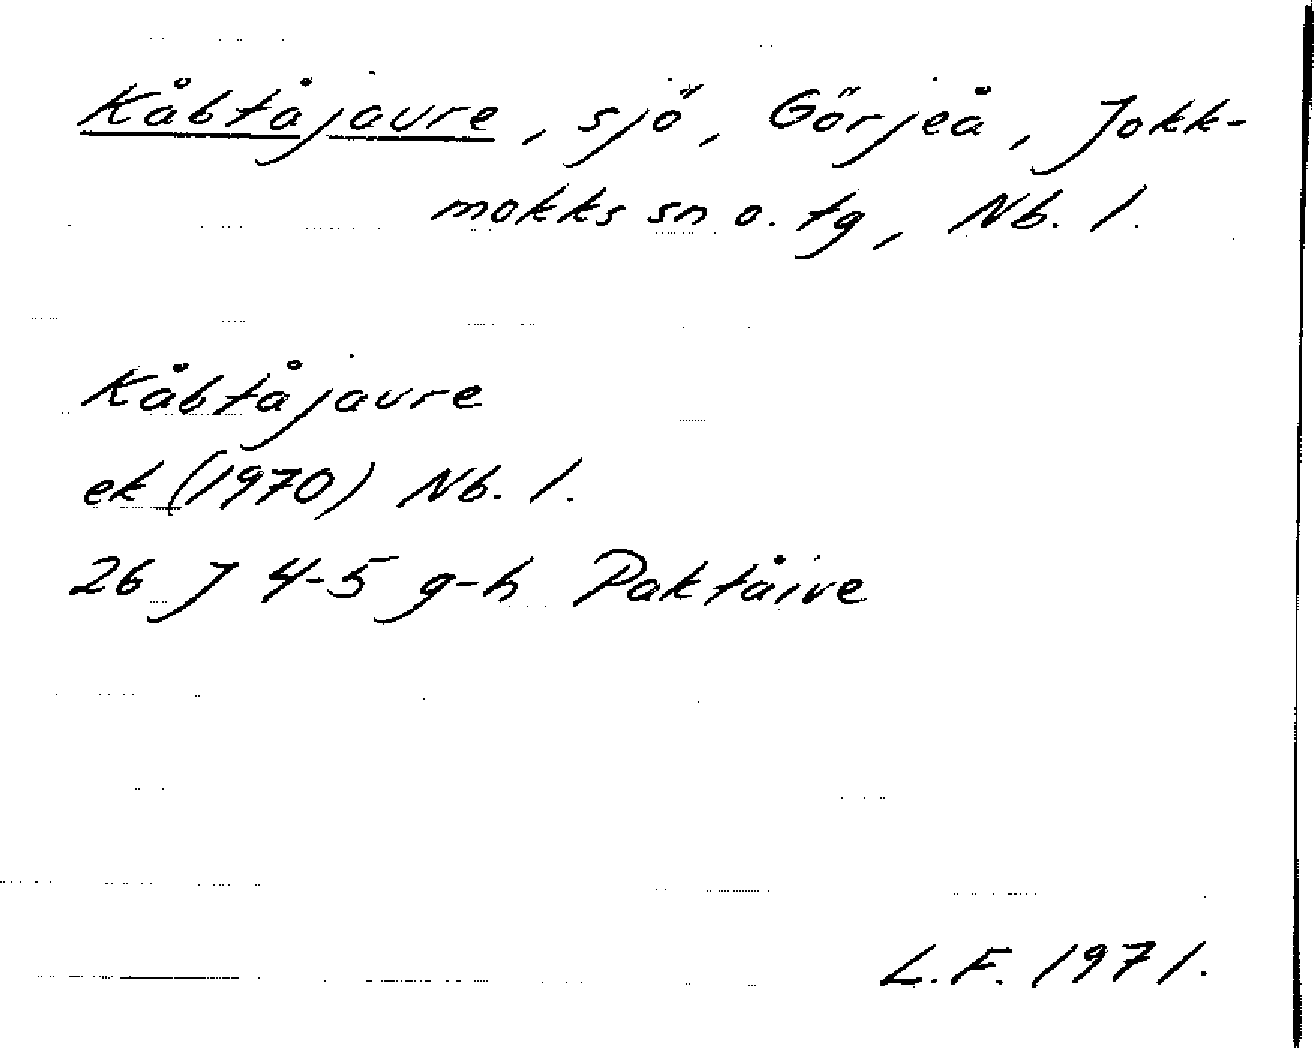 Kåbtåjaure, sjö, Görjeå, Jokk-
mokks sn o. tg, Nb. l.
Kåbtåjaure
ek (1970) Nb. l.
26 J 4-5 g-h Paktåive
L.F. 1971.